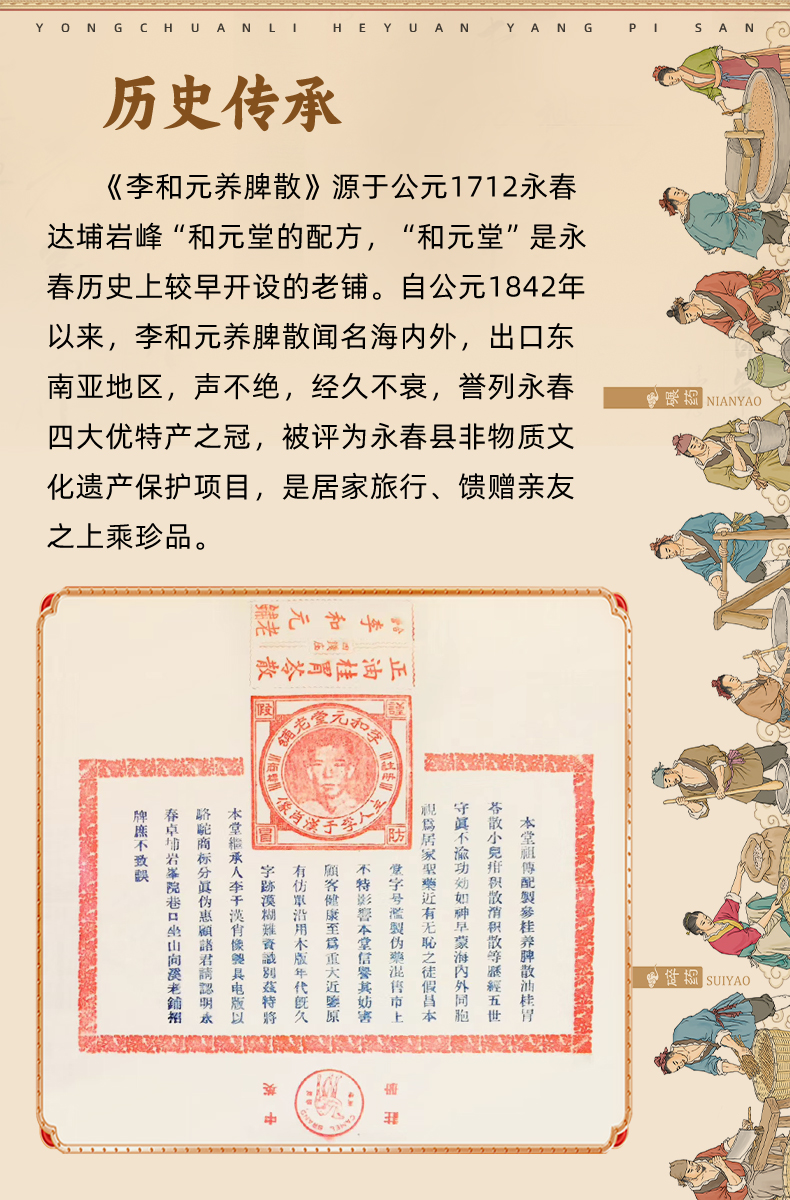 YONGCHUANLI HEYUAN YANG PI SAN
历史传承
《李和元养脾散》源于公元1712永春
达埔岩峰“和元堂的配方，“和元堂”是永
春历史上较早开设的老铺。自公元1842年
以来，李和元养脾散闻名海内外，出口东
南亚地区，声不绝，经久不衰，誉列永春
四大优特产之冠，被评为永春县非物质文
化遗产保护项目，是居家旅行、馈赠亲友
之上乘珍品。
碾药 NIANYAO
碎药 SUIYAO
李和元
老舖
正油桂胃苓散
李和元堂老舖
假
防
冒
主人李于漢肖像
本堂祖傳配製參桂养脾散油桂胃
苓散小兒疳积散消积散等歷經五世
守眞不渝功効如神早蒙海内外同胞
視爲居家聖藥近有无恥之徒假昌本
堂字号濫製伪藥混售市上
不特影響本堂信譽其妨害
顧客健康至爲重大近鑒原
有仿單沿用木版年代旣久
字跡漠糊難資識別茲特將
本堂繼承人李于漢肖像製具电版以
駱駝商标分眞伪惠顧諸君請認明永
春卓埔岩峯院巷口坐山向溪老鋪招
牌庶不致誤
CAMEL BRAND